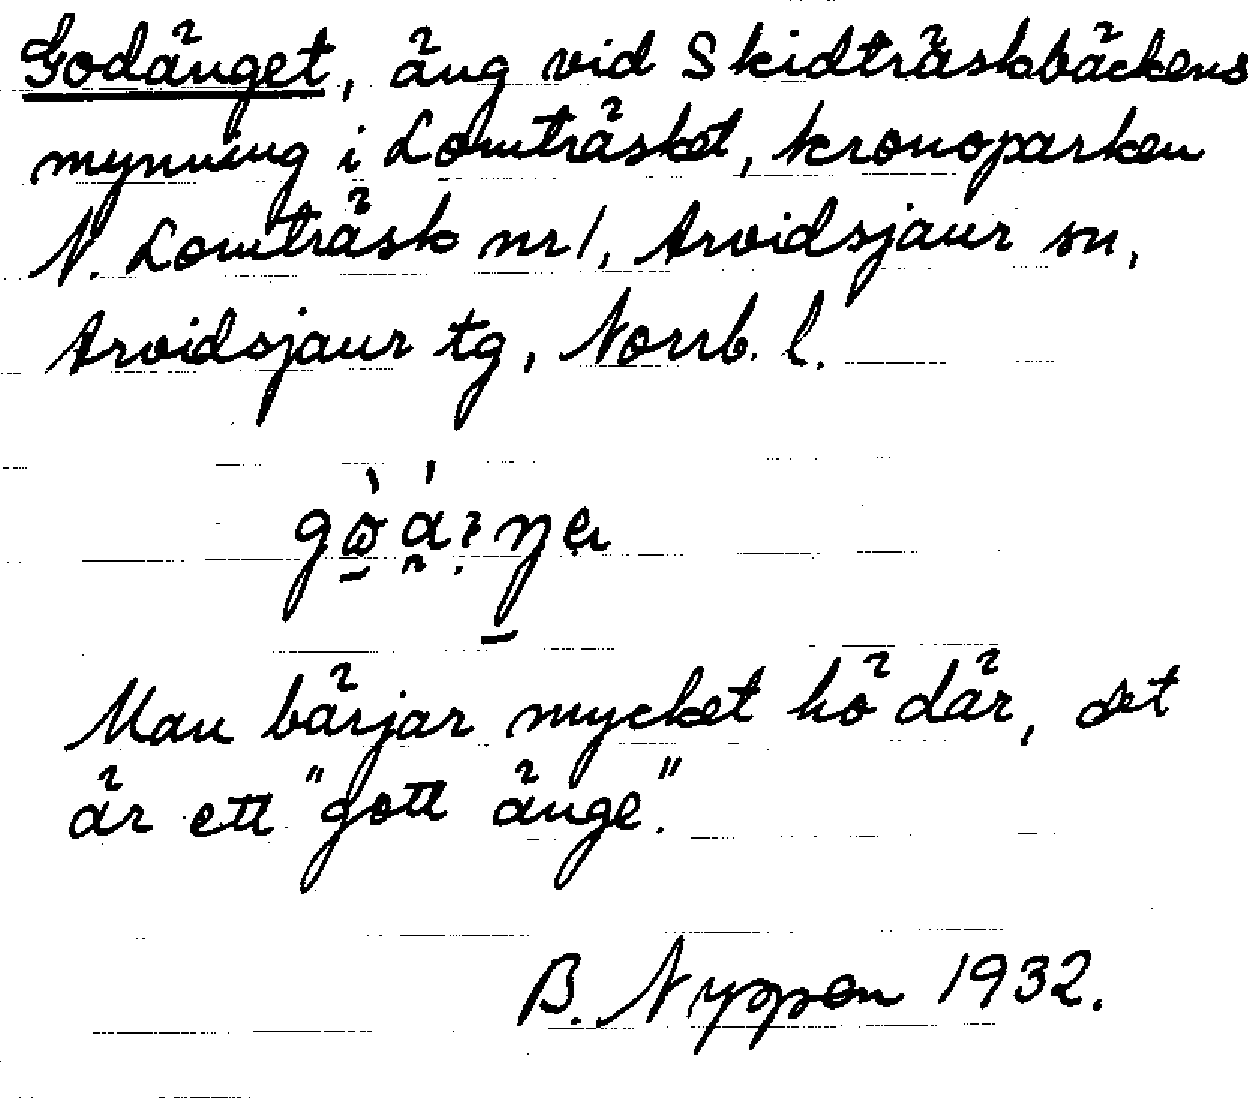 Godänget, äng vid Skidträskbäckens
mynning i Lomträsket, kronoparken
N. Lomträsk nr 1, Arvidsjaur sn,
Arvidsjaur tg, Norrb. l.
Man bärjar mycket hö där, det
är ett "gott änge".
B. Nyppen 1932.